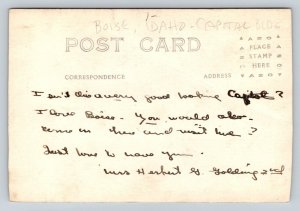 BOISE, IDAHO - CAPITAL BLDG
POST CARD
AZO
PLACE
STAMP
HERE
AZO
CORRESPONDENCE
ADDRESS
Isn't this a very good looking Capitol?
I love Boise. You would also.
come on then and visit me?
Just love to have you.
Mrs Herbert G. Golding 2nd